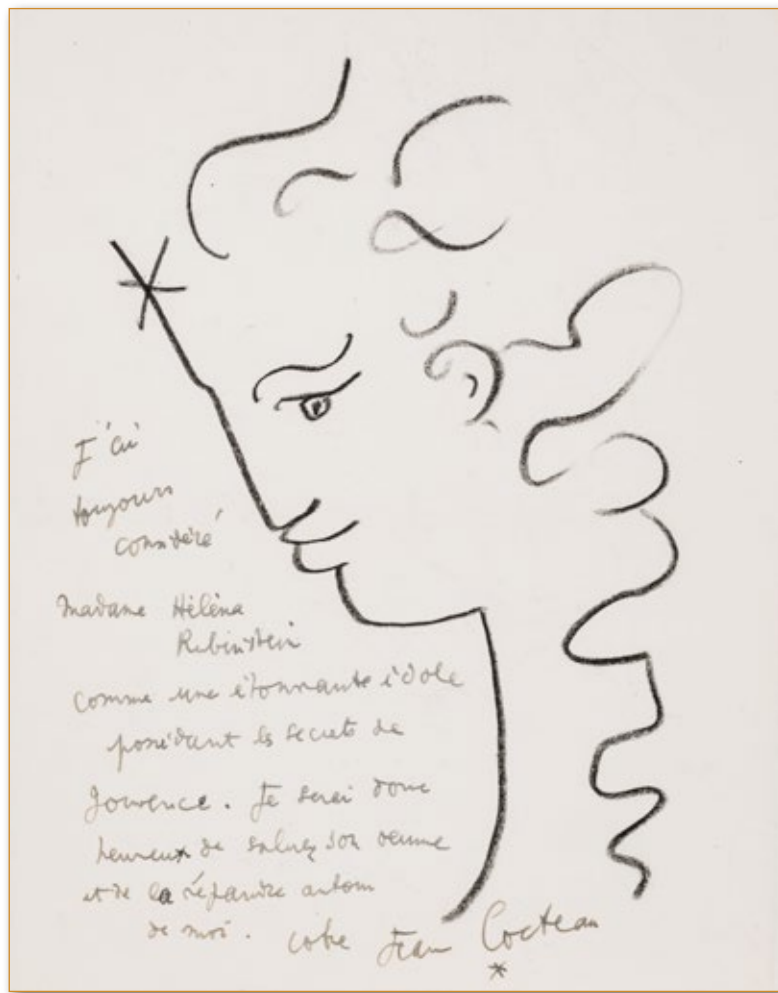 J'ai
toujours
considéré
Madame Héléna
Rubinstein
comme une étonnante idole
possédant les secrets de
Jouvence. Je serai donc
heureux de saluer son œuvre
et de la répandre autour
de moi. votre Jean Cocteau